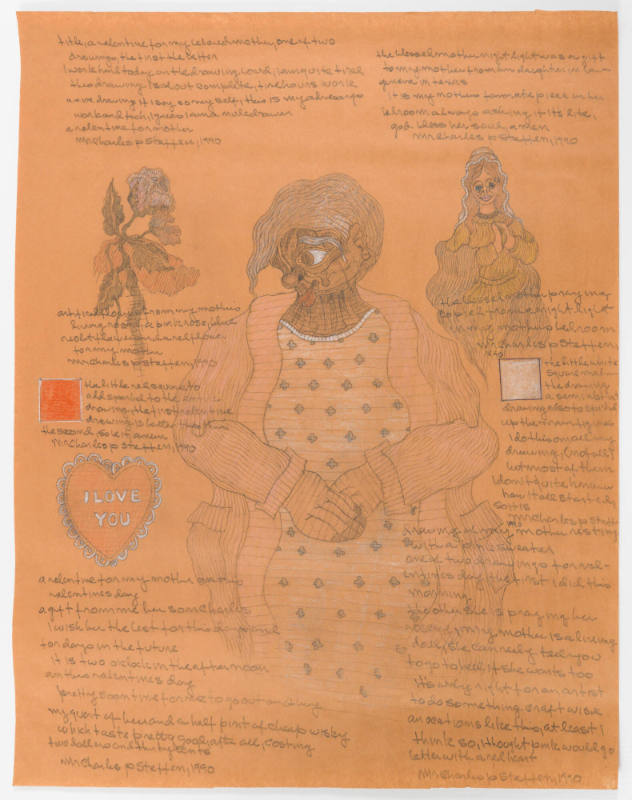 title, a valentine for my beloved mother, one of two
drawings, the first the better
I work hard today on the drawing, Lord, I am quite tired
this drawing I shall complete, five hours work
drawing if I say so myself, this is my
a valentine for mother
Mr Charles P Steffen, 1990
the blessed mother night light was a gift
to my mother from her daughter in law
geneva in texas
it is my mothers favorite piece in her
bedroom always asking if it is lite,
god bless her soul, amen
Mr Charles P Steffen, 1990
artifical flower from my mothers
living room, a pink rose, blue
violet the leaves and a red flower
for my mother
Mr Charles P Steffen, 1990
the blessed mother praying
copied from a night light
in my mothers bedroom
Mr Charles P Steffen,
1990
the little red square, to
add sparkel to the
drawing, the first valentine
drawing is better than
the second, so is it amen
Mr Charles P Steffen, 1990
the little white
square near
the drawing
drawing also to
up the drawing
I do this on all my
drawing, (not all)
but most of them
I dont quite know
how it all started,
so it is
Mr Charles P Steffen
1990
I LOVE
YOU
drawing of my mother resting
with a pink sweater
one of two drawings for val-
entines day, the first I did this
morning
the other she is praying her
rosary, my mother is a living
doll, she can realy tell you
to go to hell if she wants too
It's only right for an artist
to do something creative
on occations like this, at least I
think so, I thought pink would go
better with a red heart
Mr Charles P Steffen, 1990
a valentine for my mother on this
valentines day
a gift from me her son Charles
I wish her the best for this day and
for days in the future
it is two oclock in the afternoon
on this valentines day
pretty soon time for me to go out and buy
my quart of beer and a half pint of cheap wisky
which taste pretty good, after all, costing
two dollars and thirty cents
Mr Charles P Steffen, 1990